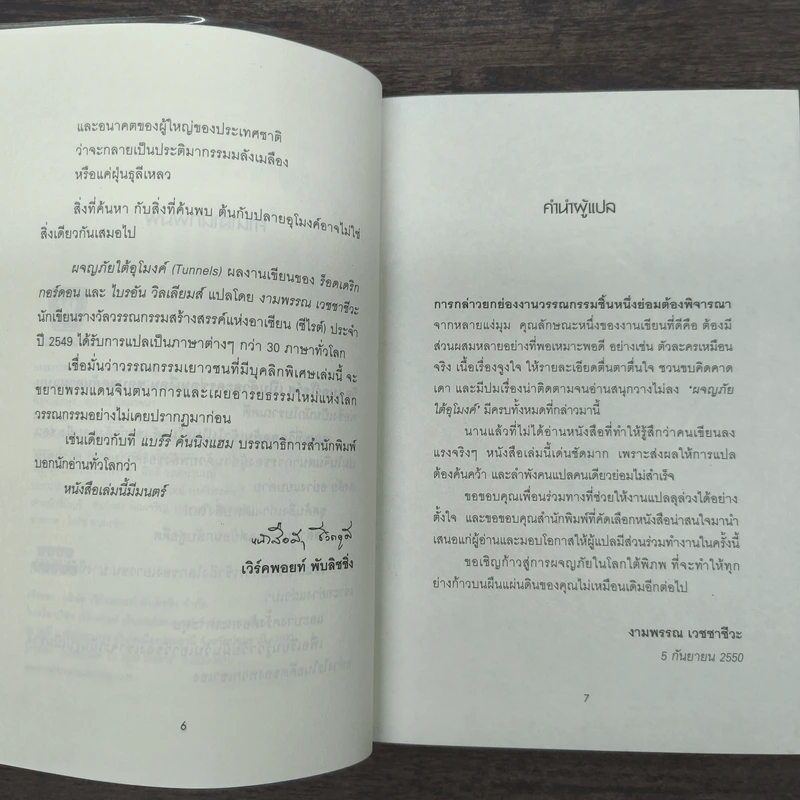 และอนาคตของผู้ใหญ่ของประเทศชาติ
ว่าจะกลายเป็นประติมากรรมมลังเมลือง
หรือแค่ฝุ่นธุลีเหลว
สิ่งที่ค้นหา กับสิ่งที่ค้นพบ ต้นกับปลายอุโมงค์อาจไม่ใช่
สิ่งเดียวกันเสมอไป
ผจญภัยใต้อุโมงค์ (Tunnels) ผลงานเขียนของ ร็อดเดริก
กอร์ดอน และ ไบรอัน วิลเลียมส์ แปลโดย งามพรรณ เวชชาชีวะ
นักเขียนรางวัลวรรณกรรมสร้างสรรค์แห่งอาเซียน (ซีไรต์) ประจำ
ปี 2549 ได้รับการแปลเป็นภาษาต่างๆ กว่า 30 ภาษาทั่วโลก
เชื่อมั่นว่าวรรณกรรมเยาวชนที่มีบุคลิกพิเศษเล่มนี้ จะ
ขยายพรมแดนจินตนาการ และเผยอารยธรรมใหม่แห่งโลก
วรรณกรรมอย่างไม่เคยปรากฏมาก่อน
เช่นเดียวกับที่ แบร์รี่ คันนิงแฮม บรรณาธิการสำนักพิมพ์
บอกนักอ่านทั่วโลกว่า
หนังสือเล่มนี้มีมนตร์
เวิร์คพอยท์ พับลิชชิ่ง
6
คำนำผู้แปล
การกล่าวยกย่องงานวรรณกรรมชิ้นหนึ่งย่อมต้องพิจารณา
จากหลายแง่มุม คุณลักษณะหนึ่งของงานเขียนที่ดีคือ ต้องมี
ส่วนผสมหลายอย่างที่พอเหมาะพอดี อย่างเช่น ตัวละครเหมือน
จริง เนื้อเรื่องจูงใจ ให้รายละเอียดตื่นตาตื่นใจ ชวนขบคิดคาด
เดา และมีปมเรื่องน่าติดตามจนอ่านสนุกวางไม่ลง 'ผจญภัย
ใต้อุโมงค์' มีครบทั้งหมดที่กล่าวมานี้
นานแล้วที่ไม่ได้อ่านหนังสือที่ทำให้รู้สึกว่าคนเขียนลง
แรงจริงๆ หนังสือเล่มนี้เด่นชัดมาก เพราะส่งผลให้การแปล
ต้องค้นคว้า และลำพังคนแปลคนเดียวย่อมไม่สำเร็จ
ขอขอบคุณเพื่อนร่วมทางที่ช่วยให้งานแปลลุล่วงได้อย่าง
ตั้งใจ และขอขอบคุณสำนักพิมพ์ที่คัดเลือกหนังสือน่าสนใจมานำ
เสนอแก่ผู้อ่านและมอบโอกาสให้ผู้แปลมีส่วนร่วมทำงานในครั้งนี้
ขอเชิญก้าวสู่การผจญภัยในโลกใต้พิภพ ที่จะทำให้ทุก
ย่างก้าวบนผืนแผ่นดินของคุณไม่เหมือนเดิมอีกต่อไป
งามพรรณ เวชชาชีวะ
5 กันยายน 2550
7